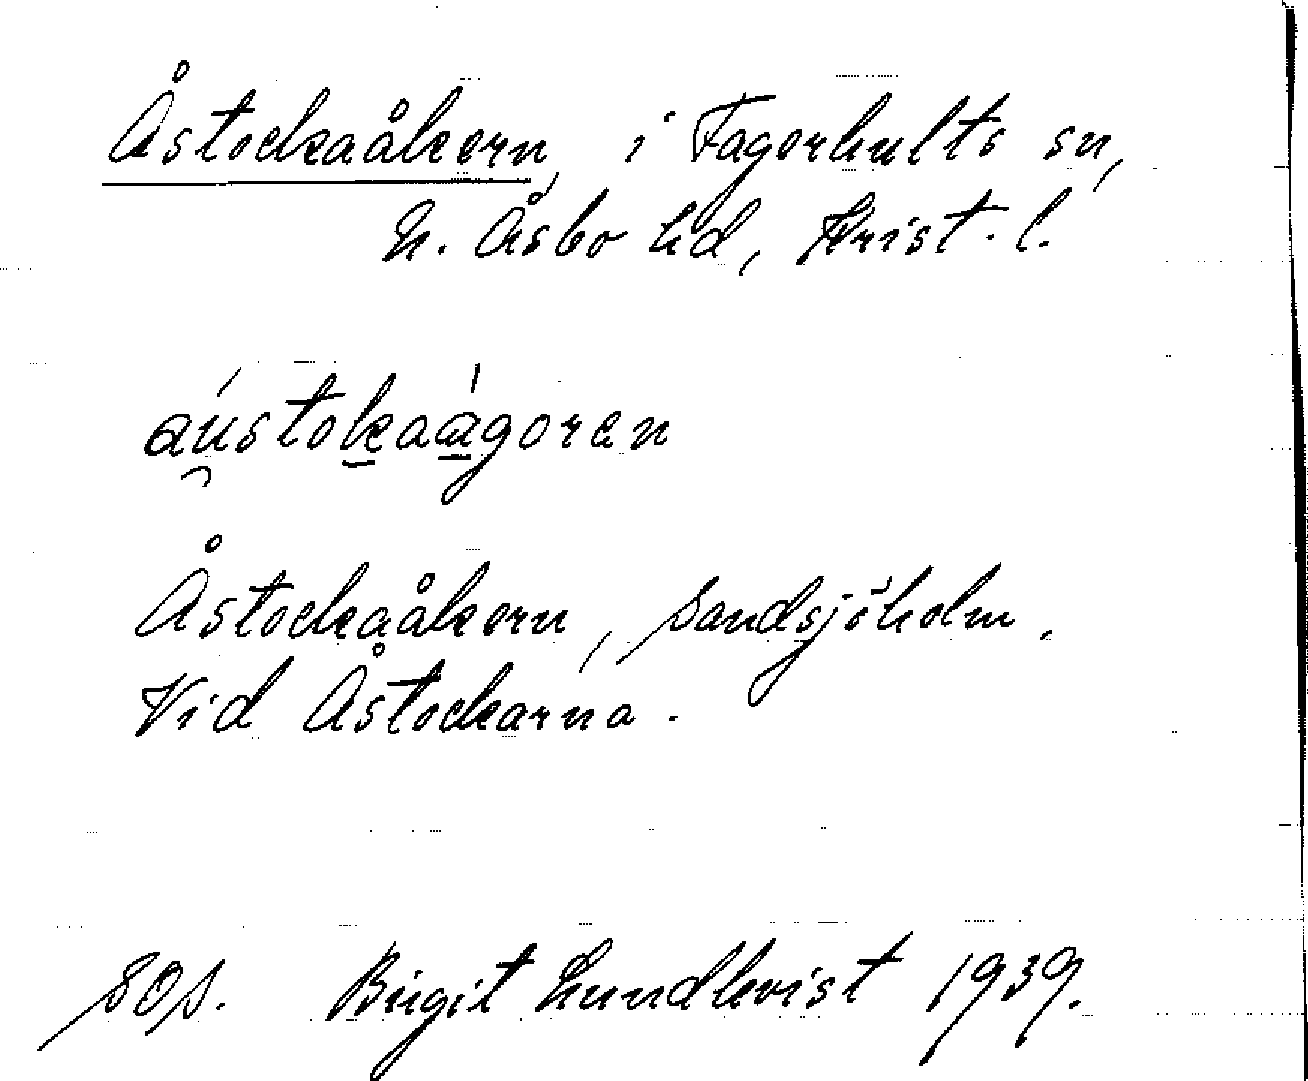 Åstockaåkern, i Fagerhults sn,
N. Åsbo hd, Krist. l.
áu̯stok̠aà̠goran
Åstockaåkern, Sandsjöholm.
Vid Åstockarna.
Birgit Lundkvist 1939.